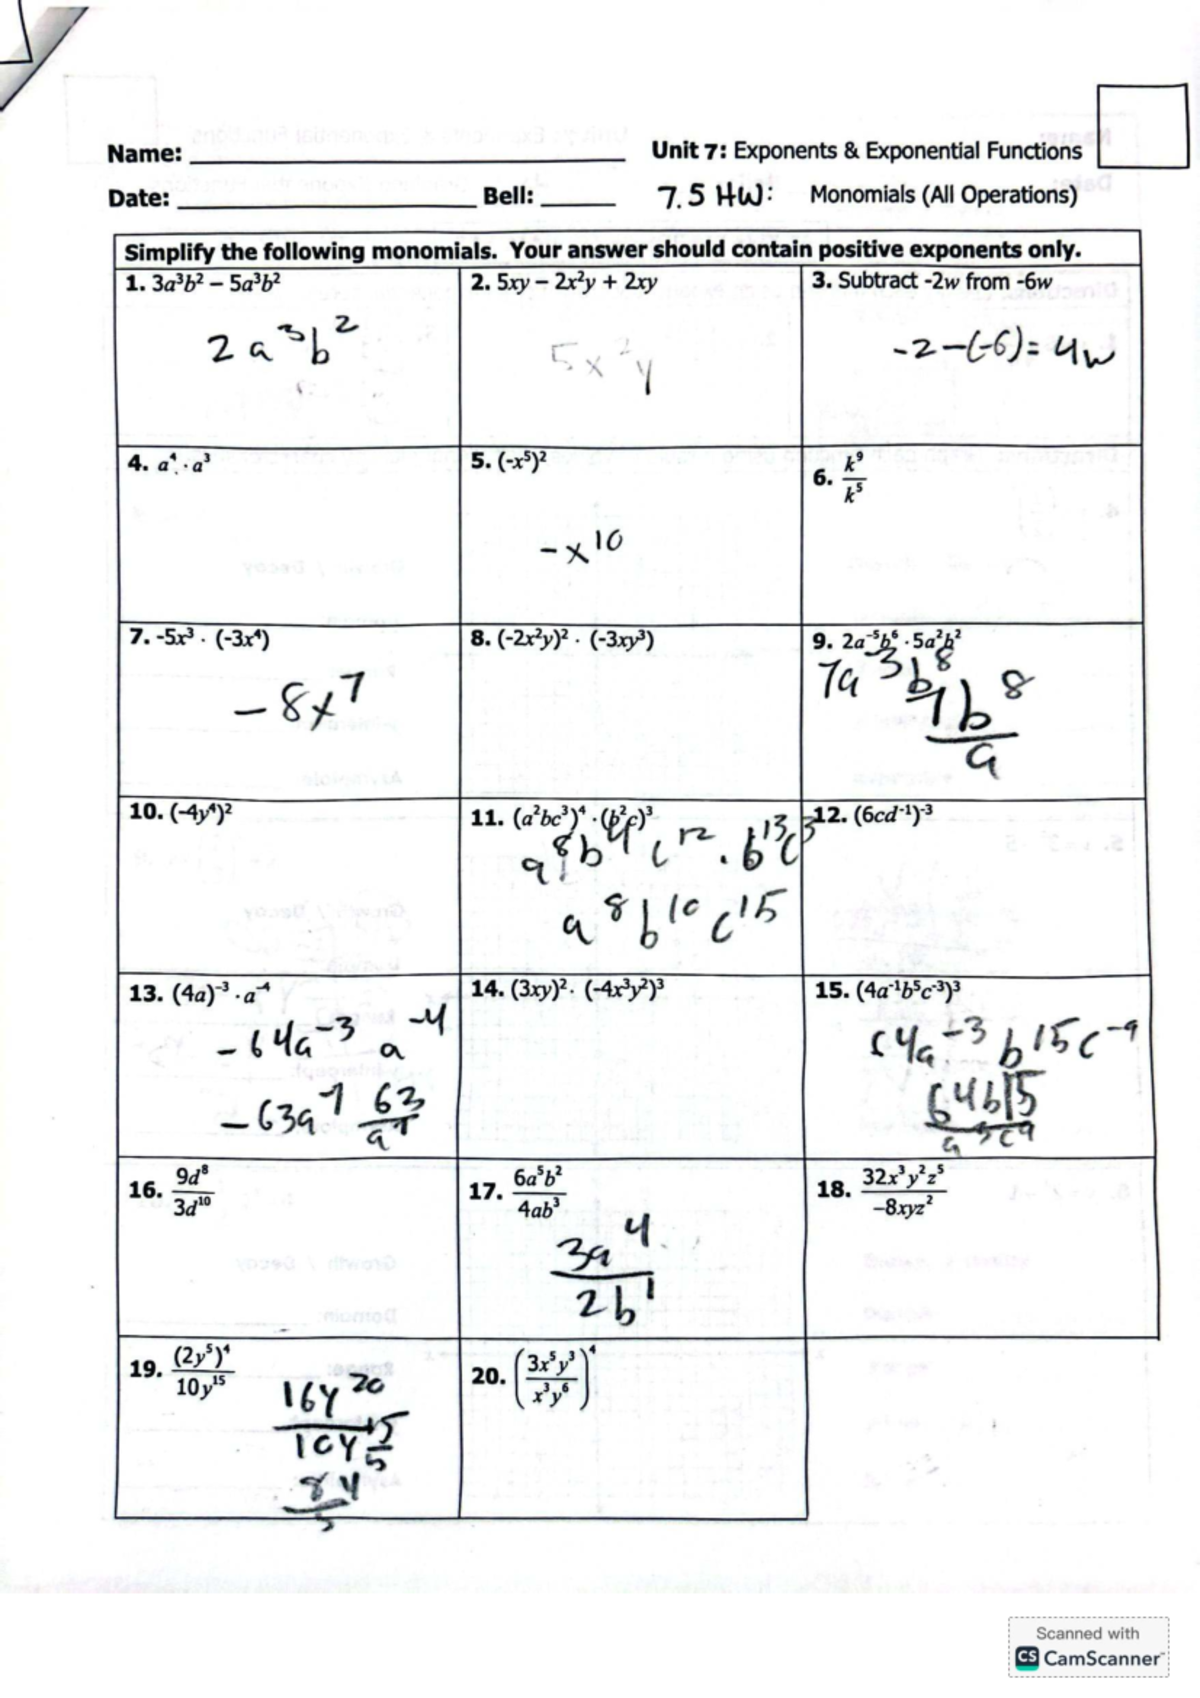 Name: Unit 7: Exponents & Exponential Functions
Date: Bell: 7.5 HW: Monomials (All Operations)
Simplify the following monomials. Your answer should contain positive exponents only.
1. 3a³b² – 5a³b²
2a³b²
2. 5xy – 2x²y + 2xy
5x²y
3. Subtract -2w from -6w
-2-(-6)=4w
4. a⁴ · a³
5. (-x⁵)²
-x¹⁰
6. k⁹/k⁵
7. -5x³ · (-3x⁴)
-8x⁷
8. (-2x²y)² · (-3xy³)
9. 2a⁻⁵b⁶ · 5a²b²
7a⁻³b⁸
b⁸
a
10. (-4y⁴)²
11. (a²bc³)⁴ · (b²c)³
a⁸b⁴c¹² · c³
a⁸b¹⁰c¹⁵
12. (6cd⁻¹)⁻³
13. (4a)⁻³ · a⁻⁴
-64a⁻³ a⁻⁴
-63a 63
a
14. (3xy)² · (-4x³y²)³
15. (4a⁻¹b⁵c⁻³)³
64a⁻³b¹⁵c⁻⁹
64b15
a³c⁹
16. 9d⁸/3d¹⁰
17. 6a⁵b²/4ab³
3a⁴
2b¹
18. 32x³y²z⁵/–8xyz²
19. (2y⁵)⁴/10y¹⁵
16y²⁰
10y
8y
5
20. (3x⁵y³/x³y⁶)⁴
Scanned with
CS CamScanner